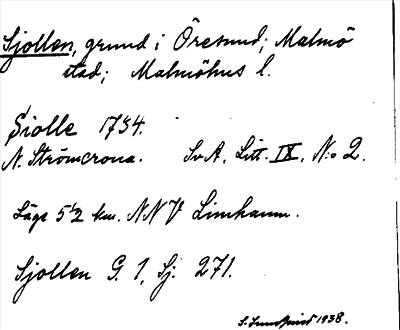 Sjollen, grund i Öresund; Malmö
stad; Malmöhus l.
Siolle 1734.
N. Strömcrona. SvA. Litt. IX, N:o 2.
Läge 5 1/2 km. NNV Limhamn.
Sjollen G. 1, Sj. 271.
S. Sundquist 1938.